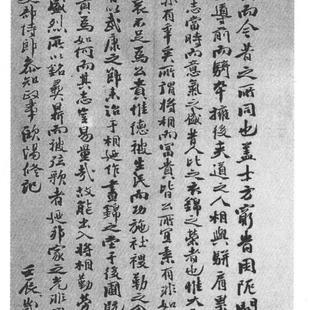 而今昔之所同也盖士方窮旹困阨閭
導前而騎卒擁後夾道之人相與駢肩累
志當時而意氣之盛昔人比之衣錦之榮者也惟大
亦有年矣所謂將相而富貴皆公所宜素有非如
袞不足為公貴惟德被生民而功施社稷勒之金
嘗以武康之節來治于相廼作晝錦之堂于後圃
前為如何而其志豈易量哉故能出入將相勤勞
盛烈所以銘彝鼎而被弦歌者廼邦家之光非
吏部侍郎參知政事歐陽修記
壬辰